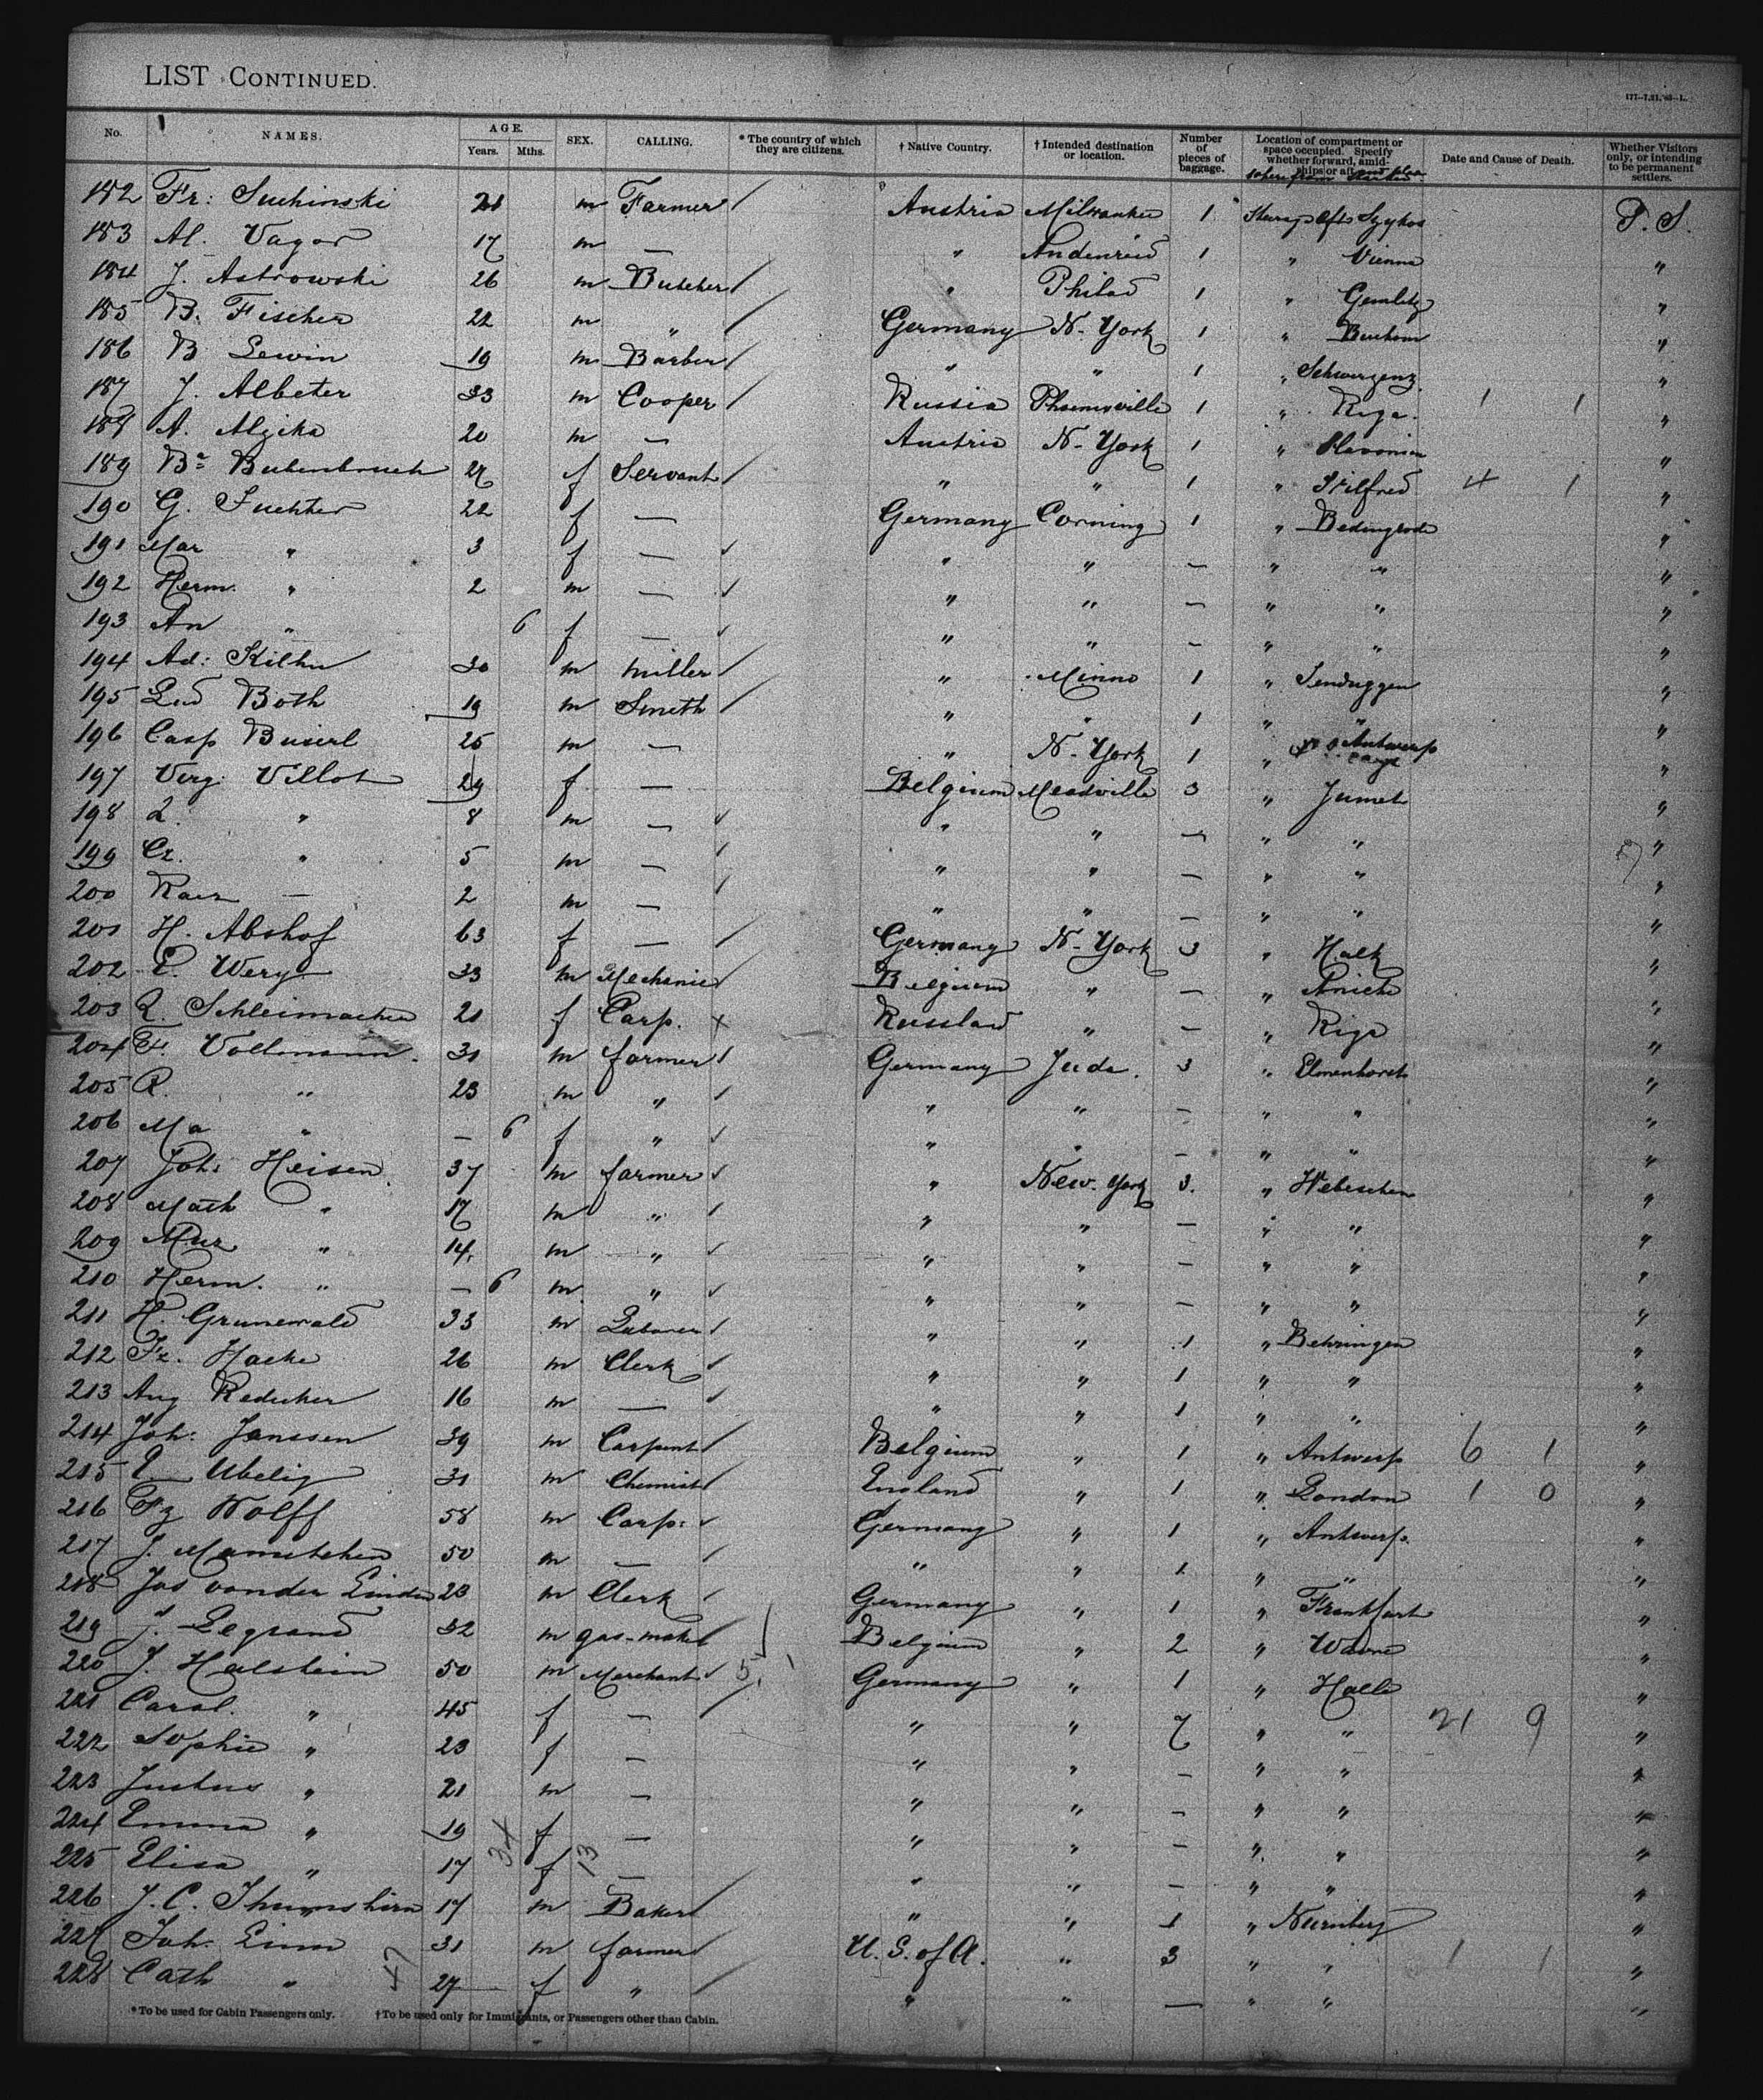 LIST CONTINUED.
177--7,21, 93--L.
No. NAMES. AGE. Years. Mths. SEX. CALLING. * The country of which they are citizens. † Native Country. † Intended destination or location. Number of pieces of baggage. Location of compartment or space occupied. Specify whether forward, amidships or aft Date and Cause of Death. Whether Visitors only, or intending to be permanent settlers.
182 Fr: Suchinski 21 m Farmer Austria Milwaukee 1 aft P. S.
183 Al. Vagor 17 m — " 1 " Vienna "
184 J. Astrowski 26 m Butcher " Philad 1 " "
185 B. Fischer 22 m " Germany N-York 1 " "
186 B Lewin 19 m Barber " " 1 " Schwerzenz "
187 J. Albeter 33 m Cooper Russia 1 " Riga. 1 1 "
188 A. 20 m — Austria N-York 1 " "
189 27 f Servant " " 1 " 4 1 "
190 G. 22 f — Germany Corning 1 " "
191 Mar " 3 f — " " — " " "
192 Herm. " 2 m — " " — " " "
193 An " 6 f — " " — " " "
194 Ad: 30 m miller " Minno 1 " "
195 Lud Both 19 m Smith " " 1 " " "
196 Casp 25 m — " N-York 1 " Antwerp "
197 Virg: Villot 29 f — Belgium Meadville 3 " Jumet "
198 L. " 8 m — " " — " " "
199 Cz. " 5 m — " " — " " "
200 — 2 m — " " — " " "
201 H. Abshof 63 f — Germany N-York 3 " "
202 E. Wery 33 m Mechanic Belgium " — " "
203 R. Schleimacher 21 f Carp. Russland " — " Riga "
204 Fr. Vollmann. 31 m farmer Germany Juda. 3 " Elmenhorst "
205 R. " 23 m " " " — " " "
206 Ma " — 6 f " " " — " " "
207 Joh: Heisen. 37 m farmer " New-York 3. " "
208 Math " 17 m " " " — " " "
209 " 14. m " " " — " " "
210 Herm. " — 6 m " " " — " " "
211 H. Grunewald 33 m Laborer " " 1 " Behringen "
212 Fr. Hacke 26 m Clerk " " 1 " " "
213 Aug Reducker 16 m — " " 1 " " "
214 Joh: Janssen 39 m Carpent Belgium " 1 " Antwerp 6 1 "
215 Ubelig 31 m Chemist England " 1 " London 1 0 "
216 Fz Wolff 58 m Carp: Germany " 1 " Antwerp. "
217 J. 50 m — " " 1 " " "
218 Jos vander Linden 23 m Clerk Germany " 1 " Frankfurt "
219 J. Legrand 52 m gas-make Belgium " 2 " Wavre "
220 J. Halstein 50 m Merchant 5 1 Germany " 1 " Halle "
221 Carol. " 45 f — " " 7 " " 21 9 "
222 Sophie " 23 f — " " — " " "
223 Justus " 21 m — " " — " " "
224 Emma " 19 f — " " — " " "
225 Elisa " 17 34 f 13 — " " — " " "
226 J. C. Thumshirn 17 m Baker " " 1 " Nurnberg "
227 Joh. Linn 31 m farmer U. S. of A. " 3 " " 1 1 "
228 Cath " 47 27 f " " " — " " "
*To be used for Cabin Passengers only. †To be used only for Immigrants, or Passengers other than Cabin.